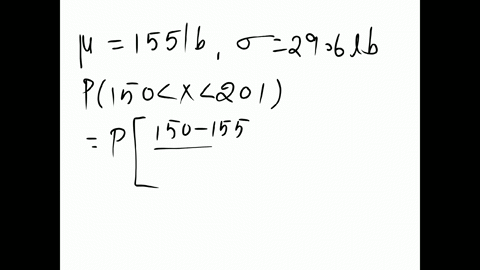 μ = 155lb, σ=29.6 lb
P(150<x<201)
= P[150-155